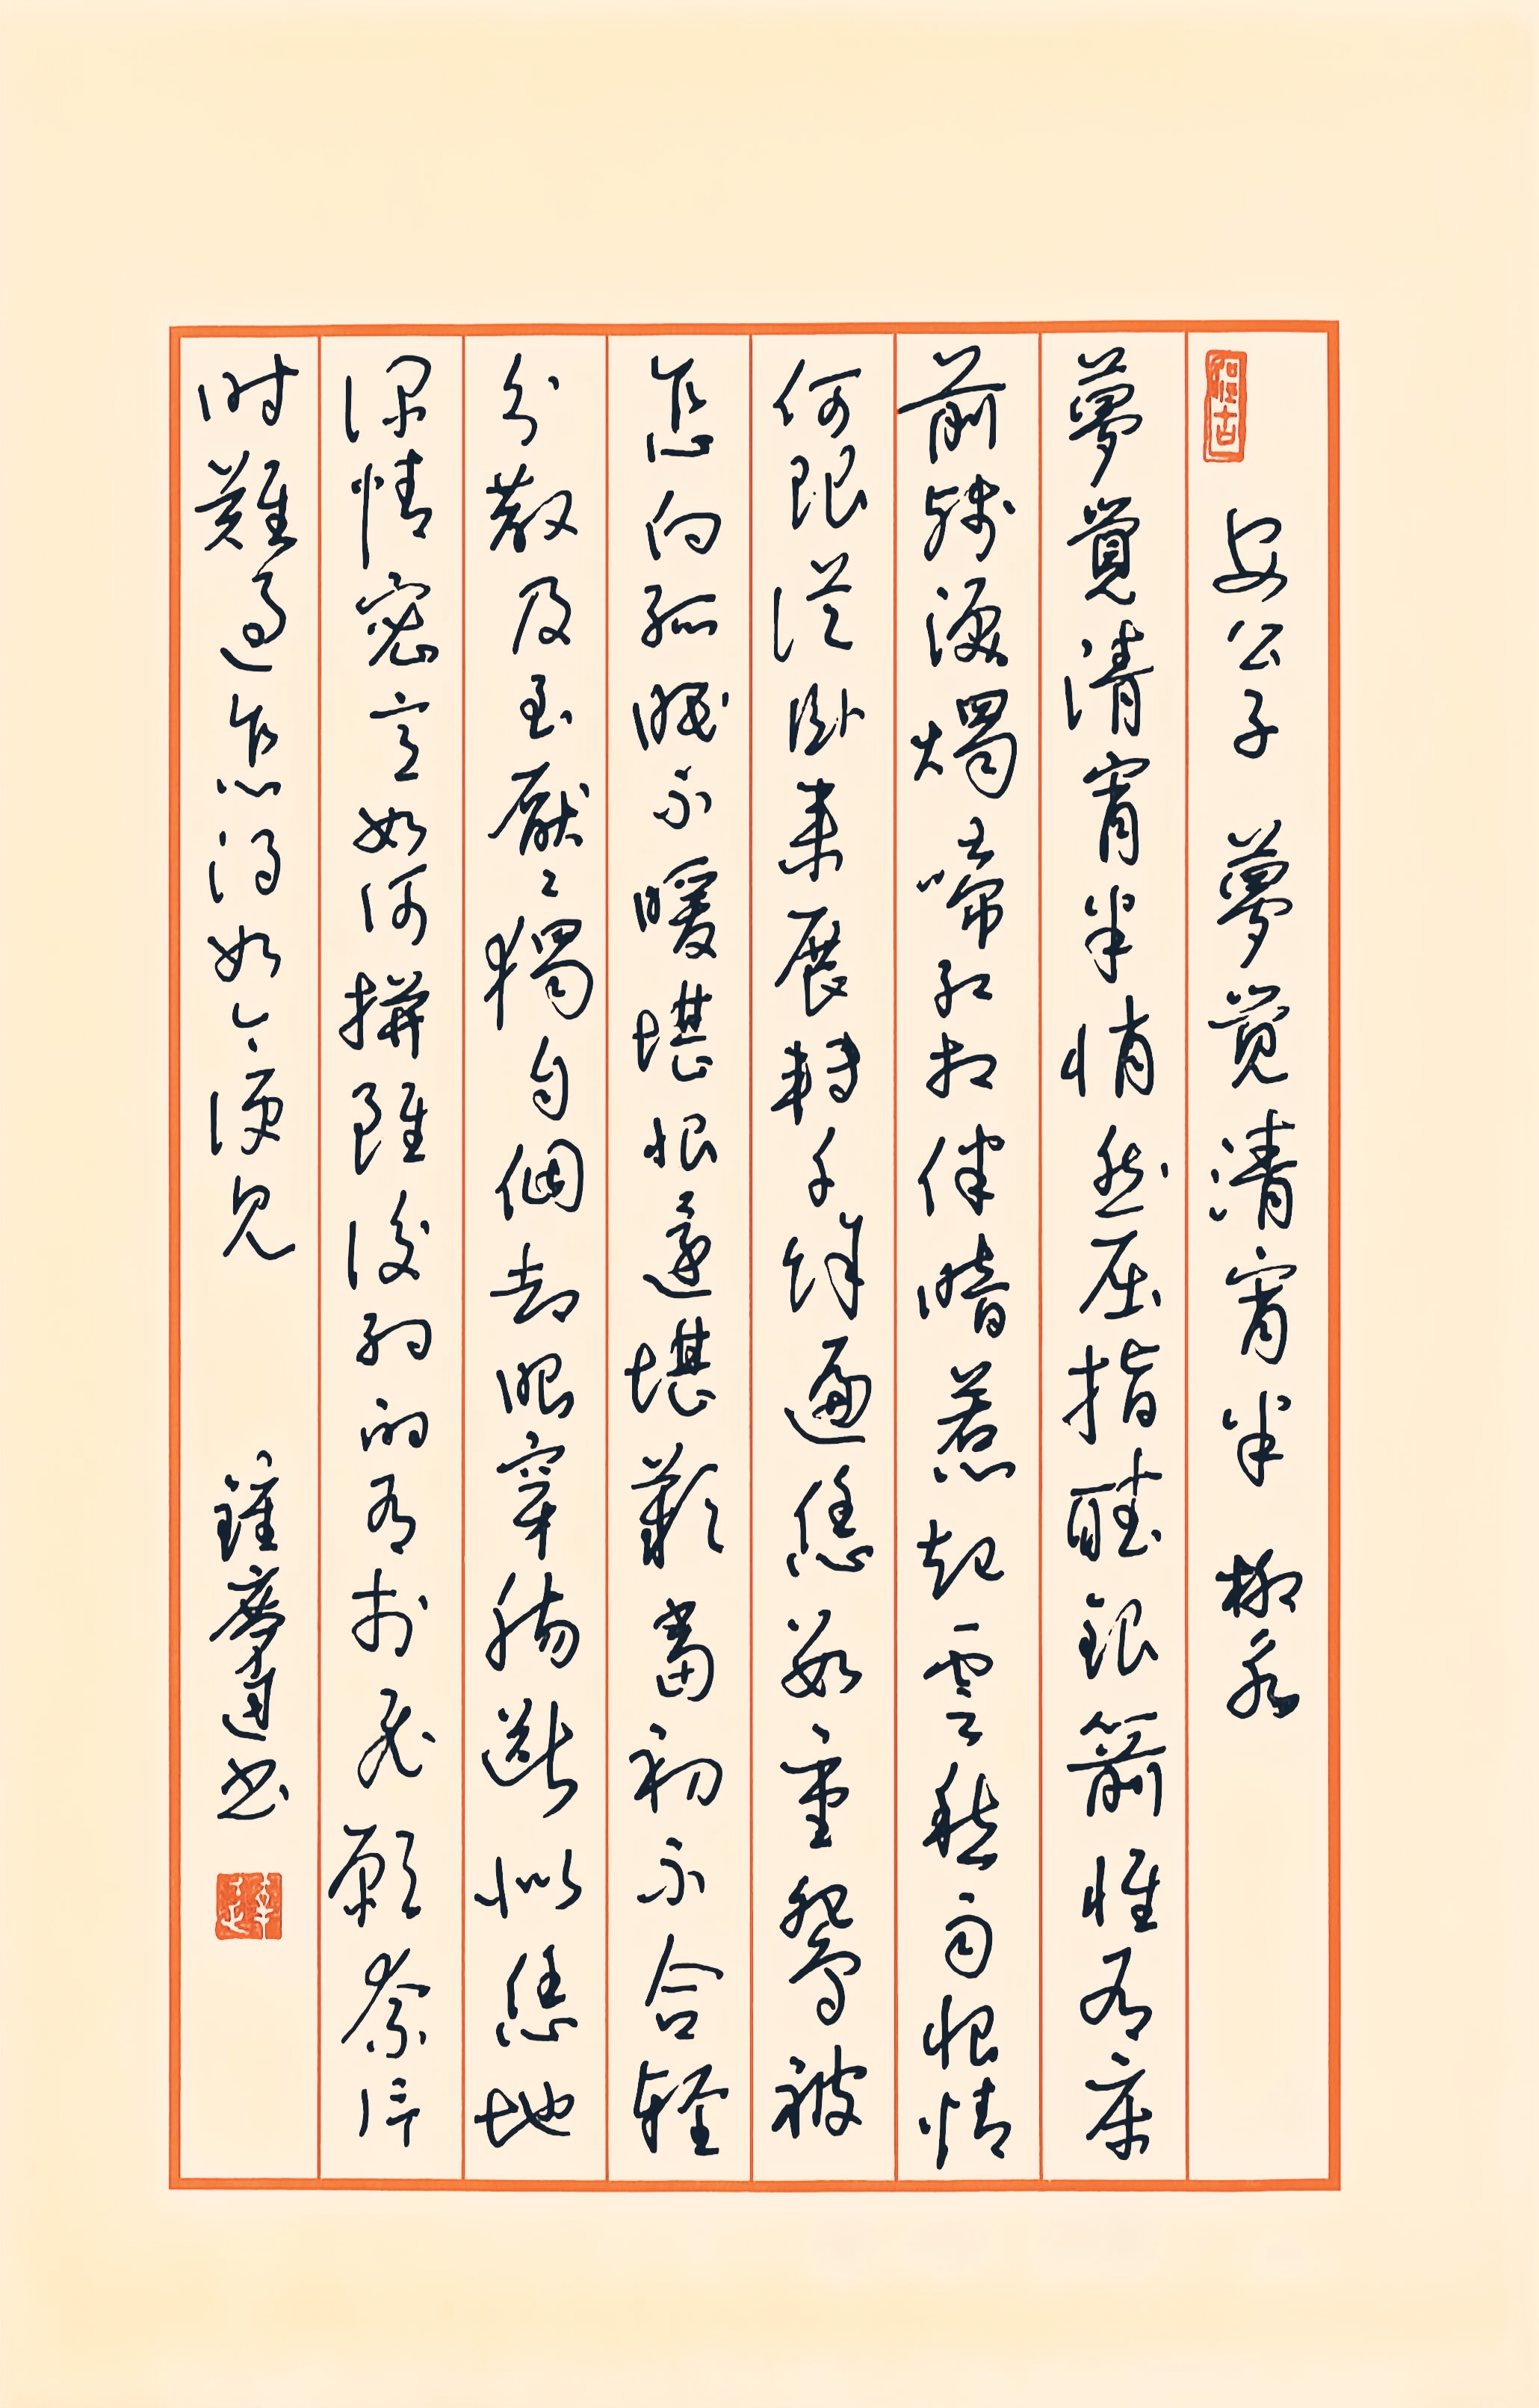 安公子 夢覺清宵半 柳永
夢覺清宵半悄然屈指聽銀箭惟有床
前殘淚燭啼紅相伴暗惹起雲愁雨恨情
何限從卧來展轉千餘遍恁數重鴛被
怎向孤眠不暖堪恨還堪歎當初不合輕
分散及至厭々獨自個却眼穿腸斷似恁地
深情密意如何拼雖後約的有於飛願奈片
時難過怎得如今便見 鍾達书
達